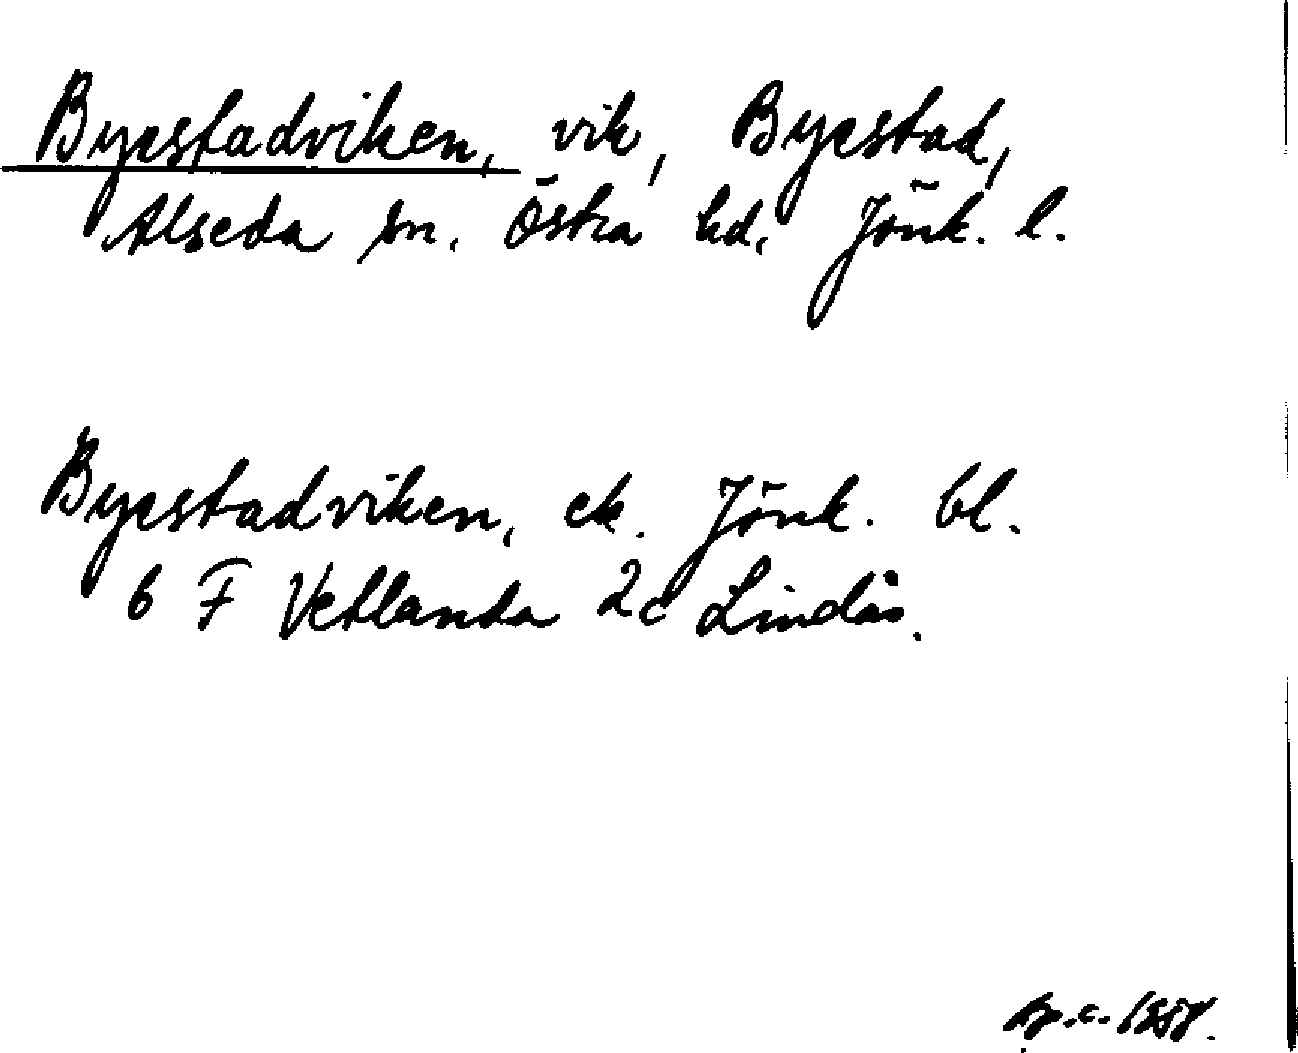 Byestadviken, vik, Byestad,
Alseda sn. Östra hd. Jönk. l.
Byestadviken, ek. Jönk. bl.
6 F Vetlanda 2c Lindås.